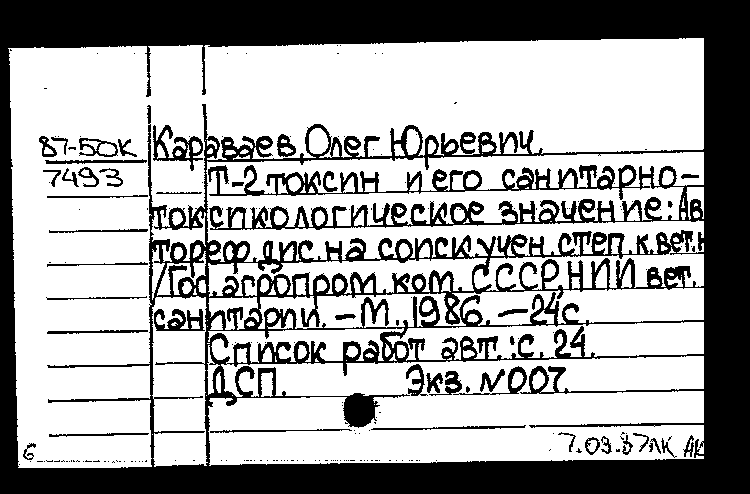 87-50К Караваев, Олег Юрьевич.
7493 Т-2 токсин и его санитарно-
токсикологическое значение: Ав
тореф. дис. на соиск. учен. степ. к. вет. н
/Гос. агропром. ком. СССР, НИИ вет.
санитарии. – М., 1986. – 24 с.
Список работ авт.: с. 24.
ДСП. Экз. N 007.
7.09.87 ЛК АК
6